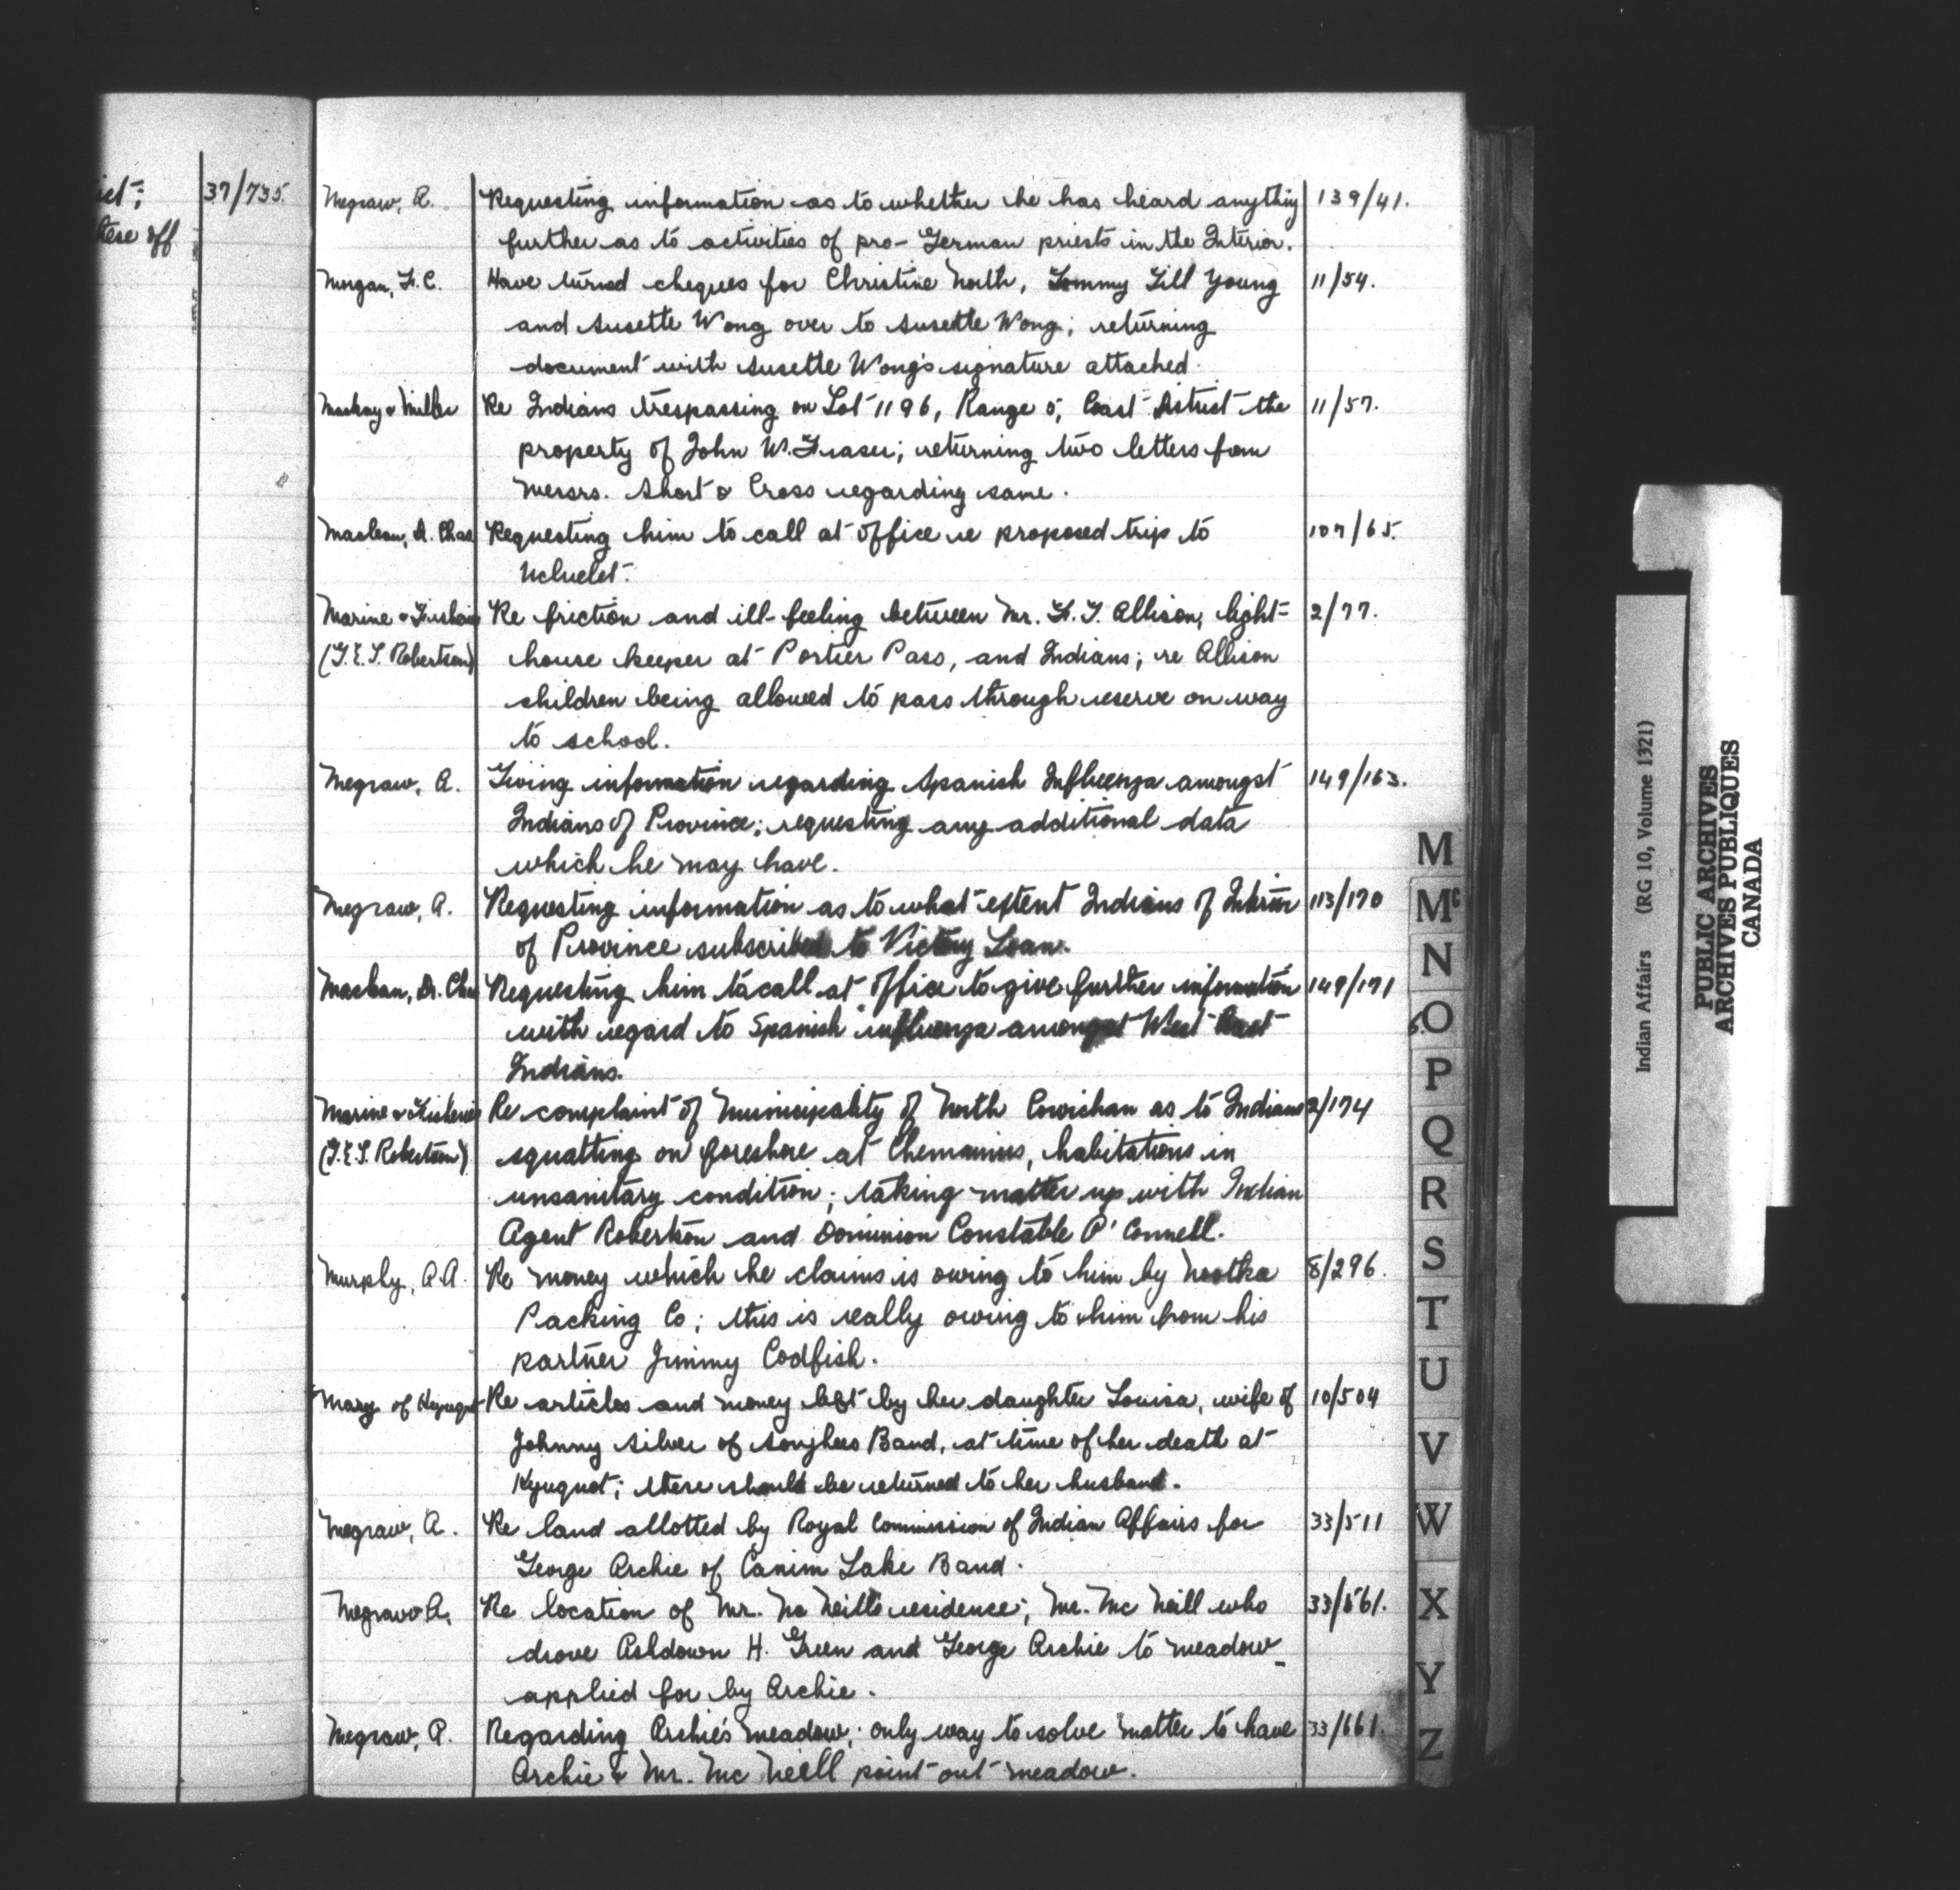 ict;
these off
37/735.
Megraw, A. Requesting information as to whether he has heard anything 139/41.
further as to activities of pro-German priests in the Interior.
Morgan, F.C. Have turned cheques for Christine North, Tommy Till Young 11/54.
and Susette Wong over to Susette Wong; returning
document with Susette Wong's signature attached.
Mackay & Miller Re Indians trespassing on Lot 1196, Range 5, Coast District the 11/57.
property of John W. Fraser; returning two letters from
Messrs. Short & Cross regarding same.
Maclean, D. Chas Requesting him to call at office re proposed trip to 107/65.
Ucluelet.
Marine & Fisheries Re friction and ill-feeling between Mr. F. T. Allison, light- 2/77.
(G.E.L. Robertson) house keeper at Portier Pass, and Indians; re Allison
children being allowed to pass through reserve on way
to school.
Megraw, A. Giving information regarding Spanish Influenza amongst 149/163.
Indians of Province; requesting any additional data
which he may have.
Megraw, A. Requesting information as to what extent Indians of Interior 113/170
of Province subscribed to Victory Loan.
Maclean, Dr. Chas Requesting him to call at office to give further information 149/171
with regard to Spanish influenza amongst West Coast
Indians.
Marine & Fisheries Re complaint of Municipality of North Cowichan as to Indians 2/174
(G.E.L. Robertson) squatting on foreshore at Chemainus, habitations in
unsanitary condition; taking matter up with Indian
Agent Robertson and Dominion Constable O'Connell.
Murphy, A.A. Re money which he claims is owing to him by Nootka 8/296.
Packing Co; this is really owing to him from his
partner Jimmy Codfish.
Mary of Kyuquot Re articles and money left by her daughter Louisa, wife of 10/504
Johnny Silver of Songhees Band, at time of her death at
Kyuquot; these should be returned to her husband.
Megraw, A. Re land allotted by Royal Commission of Indian Affairs for 33/511
George Archie of Canim Lake Band.
Megraw A. Re location of Mr. Mc Neill's residence; Mr. Mc Neill who 33/561.
drove Ashdown H. Green and George Archie to meadow
applied for by Archie.
Megraw, A. Regarding Archie's meadow; only way to solve matter to have 33/661.
Archie & Mr. Mc Neill point out meadow.
M
Mc
N
O
P
Q
R
S
T
U
V
W
X
Y
Z
Indian Affairs (RG 10, Volume 1321)
PUBLIC ARCHIVES
ARCHIVES PUBLIQUES
CANADA